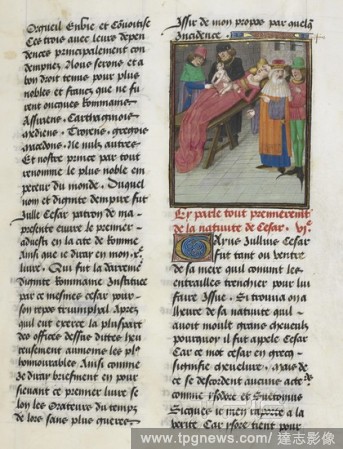 Orgueil Enuie et Conuoitise
Ces trois auec leurs depen
dences principalement con
dempnez Nous serons et a
bon droit tenus pour plus
nobles et francz que ne fu
rent oncques Rommains
Assiriens, Cartaginois
mediens, Troyens, gregois
macedons, Ne nulz autres
Et nostre prince par tout
renomme le plus noble em
pereur du monde. Duquel
nom et dignite dempire fut
Julle Cesar patron de ma
presente euure le premier
en la cite de Romme
Ainsi que ie diray en mon x.e
liure. Qui fut la derreniere
dignite Rommaine Instituee
par ce mesmes cesar pour
son repos triumphal Apres
quil eut exerce la pluspart
des offices dessus dittes heu
reusement comme les plus
honnourables Ainsi comme
Je diray briefment en pour
sieuant ce premier liure se
lon les Orateurs du temps
de lors sans plus querre
Issir de mon propos par quelque
Incidence
Cy parle tout premierement
de la natiuite de Cesar. vj.e
Gayus Julius Cesar
fut tant ou ventre
de sa mere quil conuint les
entrailles trenchier pour lui
faire Issue. Si trouua on a
lheure de sa natiuite quil
auoit moult grans cheueulx
pourquoy il fut apele Cesar
Car ce mot cesar en grecq
signifie cheuelure. mais de
ce se desfordent aucuns
comme ysodore et Suetonius
Sicques ie men raporte a la
verite Car ysore tient pour
www.tpgnews.com / 達志影像